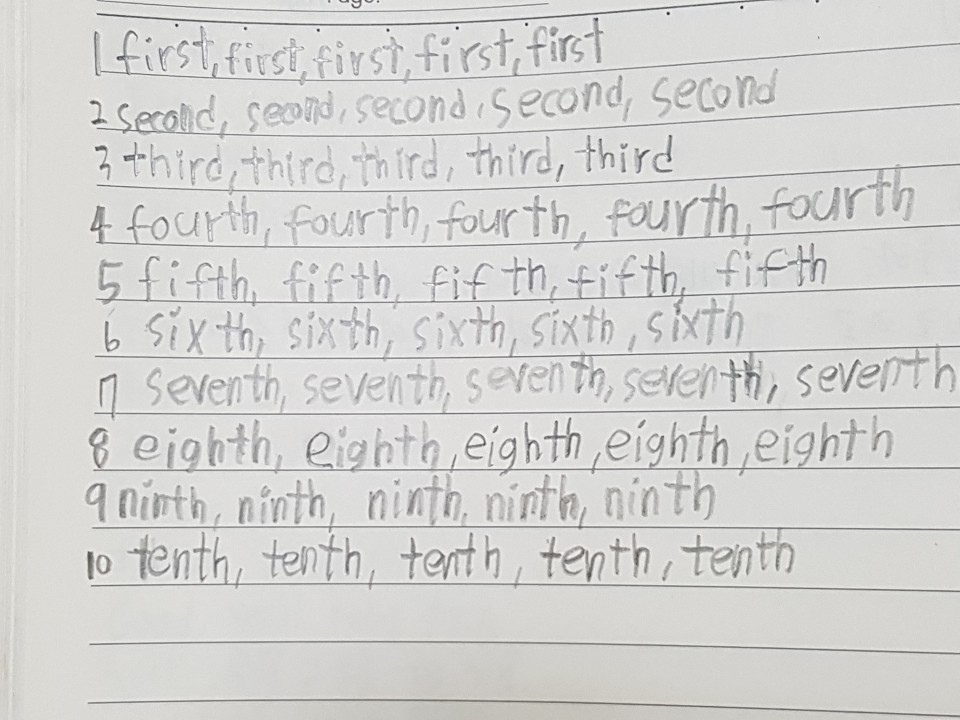 1 first, first, first, first, first
2 second, second, second, second, second
3 third, third, third, third, third
4 fourth, fourth, fourth, fourth, fourth
5 fifth, fifth, fifth, fifth, fifth
6 sixth, sixth, sixth, sixth, sixth
7 seventh, seventh, seventh, seventh, seventh
8 eighth, eighth, eighth, eighth, eighth
9 ninth, ninth, ninth, ninth, ninth
10 tenth, tenth, tenth, tenth, tenth